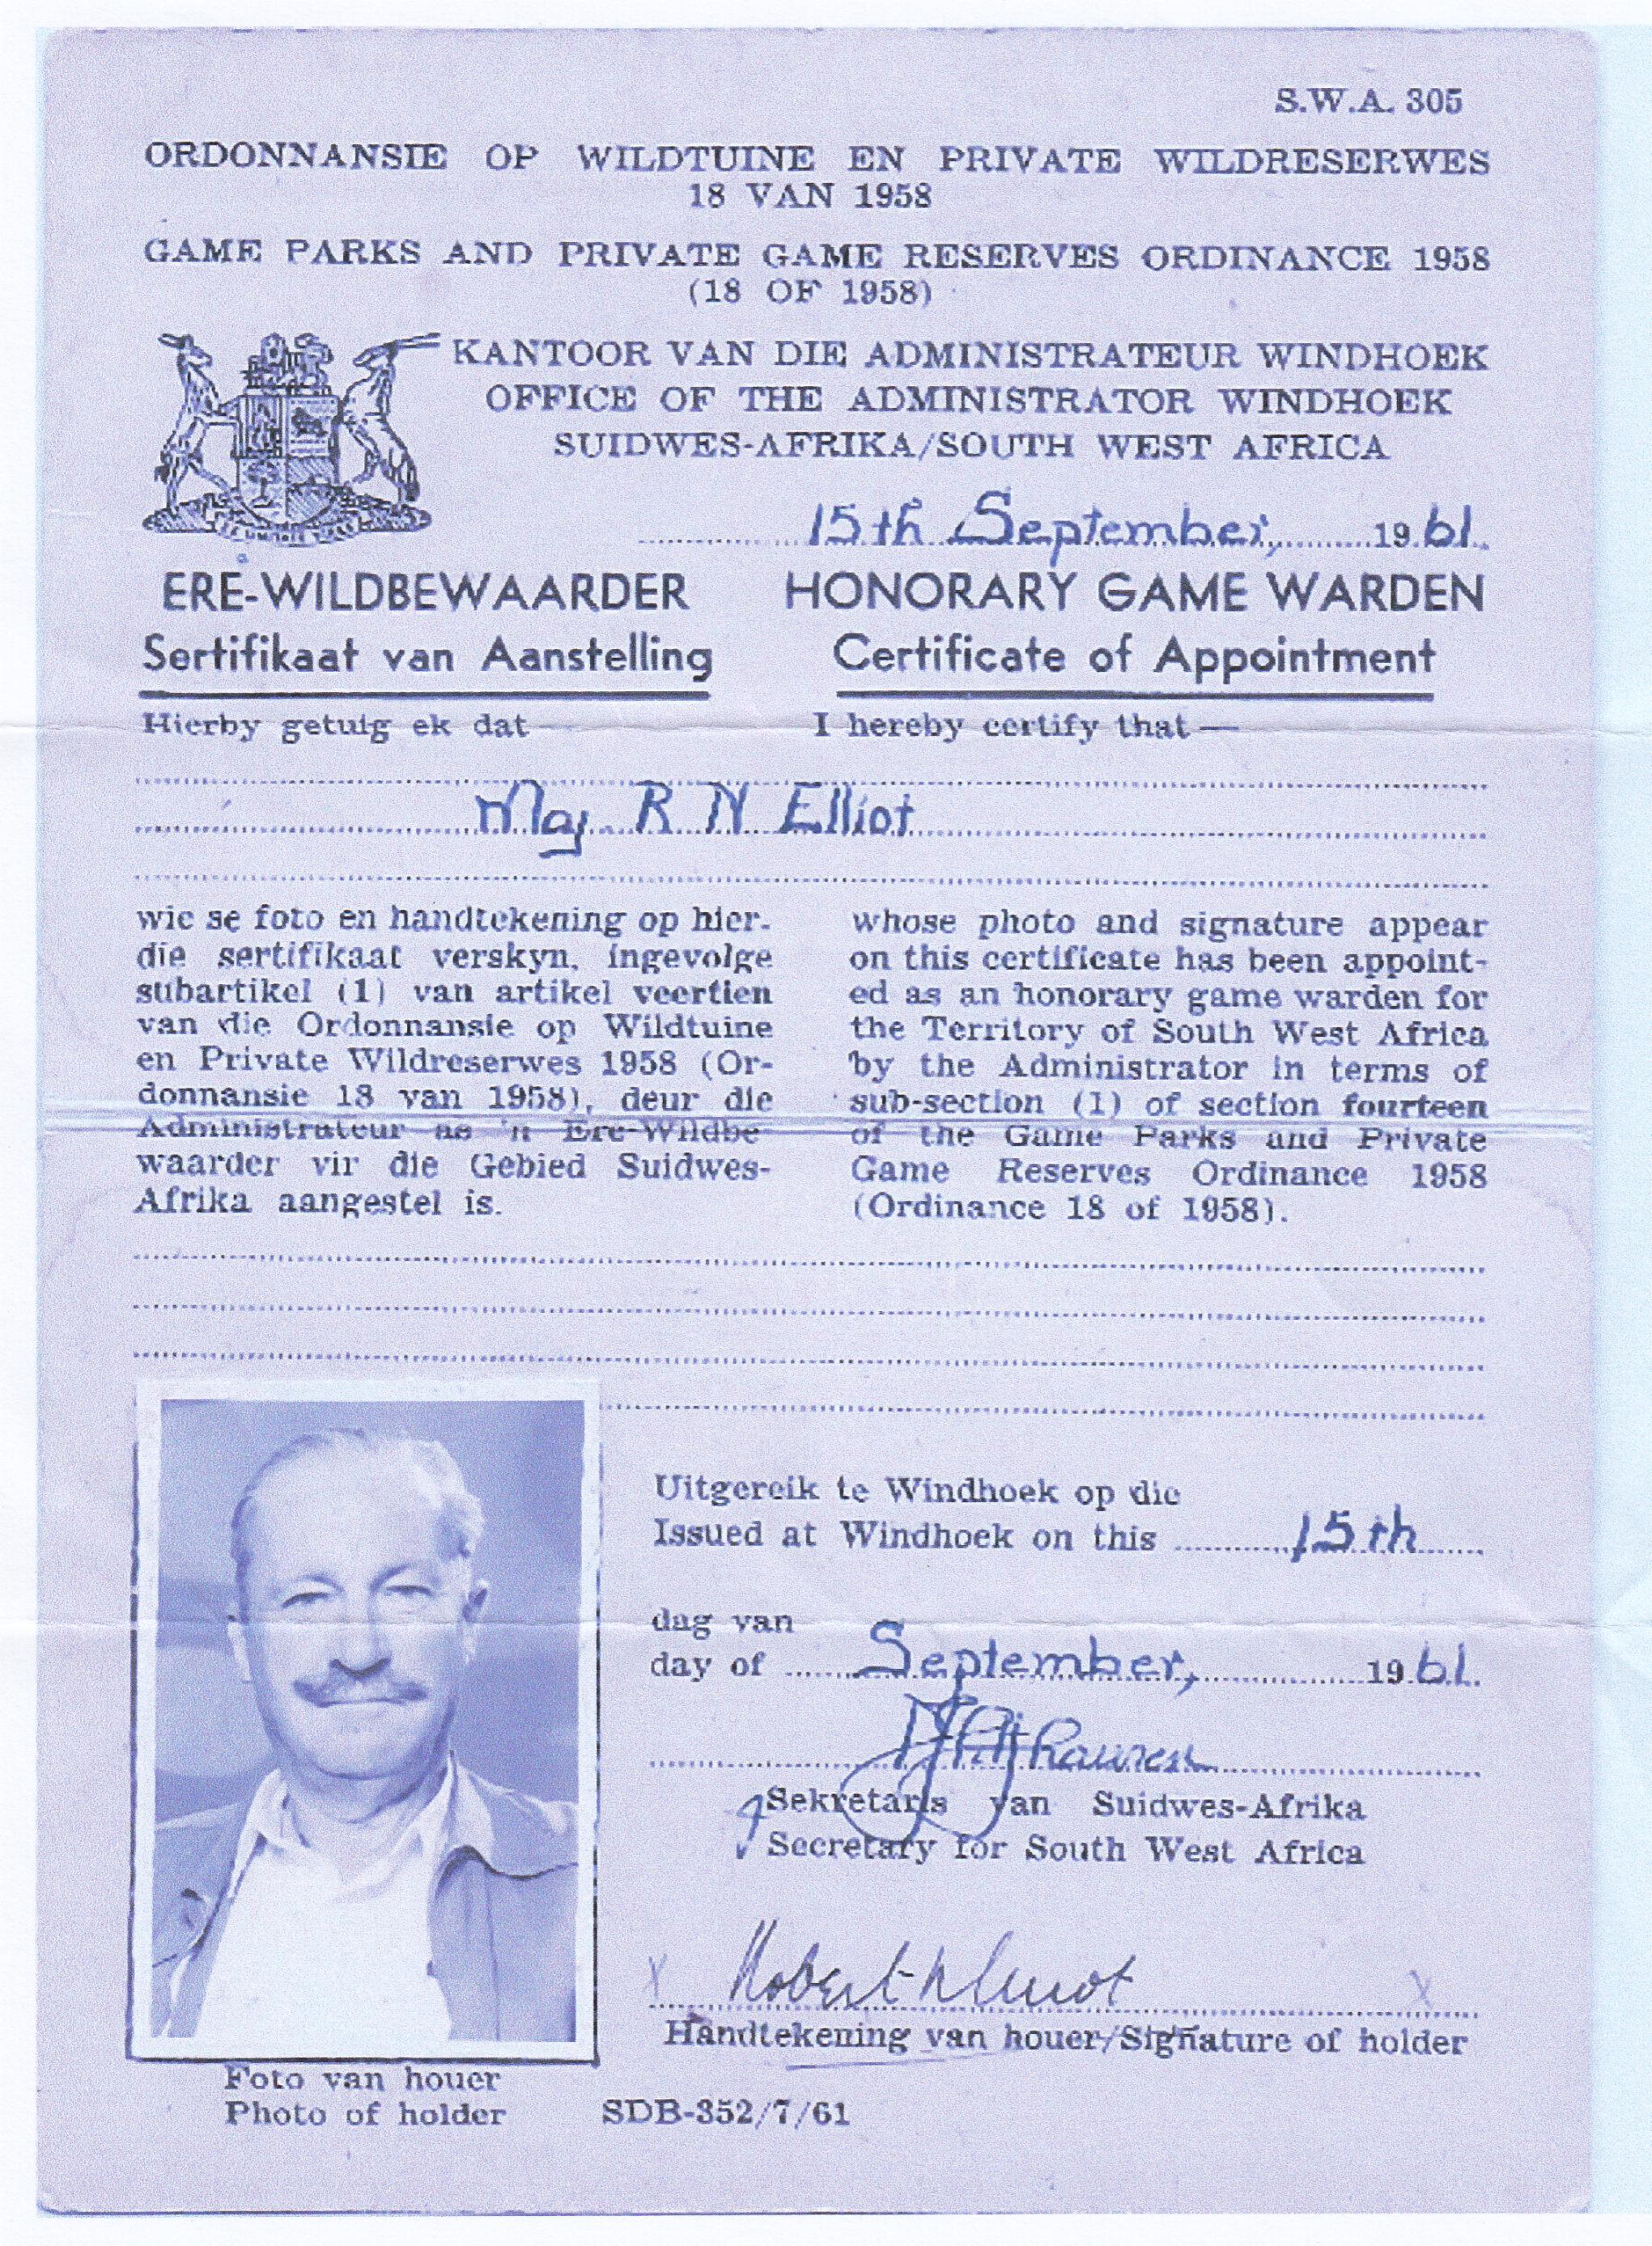 S.W.A. 305
ORDONNANSIE OP WILDTUINE EN PRIVATE WILDRESERWES
18 VAN 1958
GAME PARKS AND PRIVATE GAME RESERVES ORDINANCE 1958
(18 OF 1958)
KANTOOR VAN DIE ADMINISTRATEUR WINDHOEK
OFFICE OF THE ADMINISTRATOR WINDHOEK
SUIDWES-AFRIKA/SOUTH WEST AFRICA
15th September, 1961.
ERE-WILDBEWAARDER
Sertifikaat van Aanstelling
Hierby getuig ek dat —
HONORARY GAME WARDEN
Certificate of Appointment
I hereby certify that —
Maj R N Elliot
wie se foto en handtekening op hier-
die sertifikaat verskyn, ingevolge
subartikel (1) van artikel veertien
van die Ordonnansie op Wildtuine
en Private Wildreserwes 1958 (Or-
donnansie 18 van 1958), deur die
Administrateur as 'n Ere-Wildbe
waarder vir die Gebied Suidwes-
Afrika aangestel is.
whose photo and signature appear
on this certificate has been appoint-
ed as an honorary game warden for
the Territory of South West Africa
by the Administrator in terms of
sub-section (1) of section fourteen
of the Game Parks and Private
Game Reserves Ordinance 1958
(Ordinance 18 of 1958).
Uitgereik te Windhoek op die
Issued at Windhoek on this 15th
dag van
day of September, 1961.
Sekretaris van Suidwes-Afrika
Secretary for South West Africa
X Robert N Elliot X
Handtekening van houer/Signature of holder
Foto van houer
Photo of holder
SDB-352/7/61